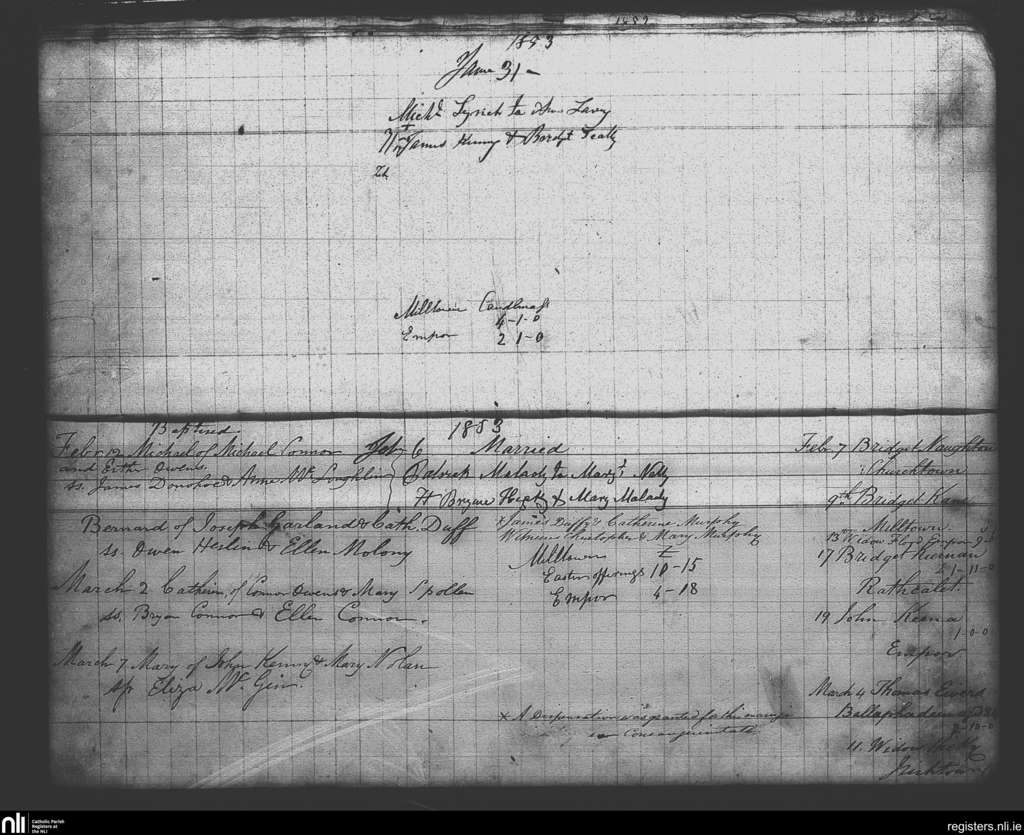 1853
Jany 31 -
Michl Lynch to Ann Lavy
James Kenny & Bridgt Leally
Milltown Candlemass
4-1-0
Empor 2 1-0
1853
Baptised
Feby 12 Michael of Michael Connor
and Esther Owens
ss. James Donohoe & Anne McLoughlin
Bernard of Joseph Garland & Cath. Duff
ss. Owen Heslin & Ellen Molony
March 2 Catherin, of Connor Owens & Mary Spollen
ss. Bryan Connor & Ellen Connor.
March 7 Mary of John Kenny & Mary Nolan
sp Eliza Mc. Ginn
Feby 6 Married
Patrick Malady to Margt Nally
Bryane & Mary Malady
x James Duffy & Catherine Murphy
Witness Christopher & Mary Murphy
Milltown £
Easter offerings 10-15
Empor 4-18
x A Dispensation was granted for this marriage
in Consanguinitate
Feb. 7 Bridget Naughton
Churchtown
9th Bridget Kane
Milltown
13 Widow Floyd Empor
17 Bridget Keenan
1-11-0
Rathcalet.
19 John Keena
1-0-0
Empor
March 4 Thomas Eivers
11. Widow